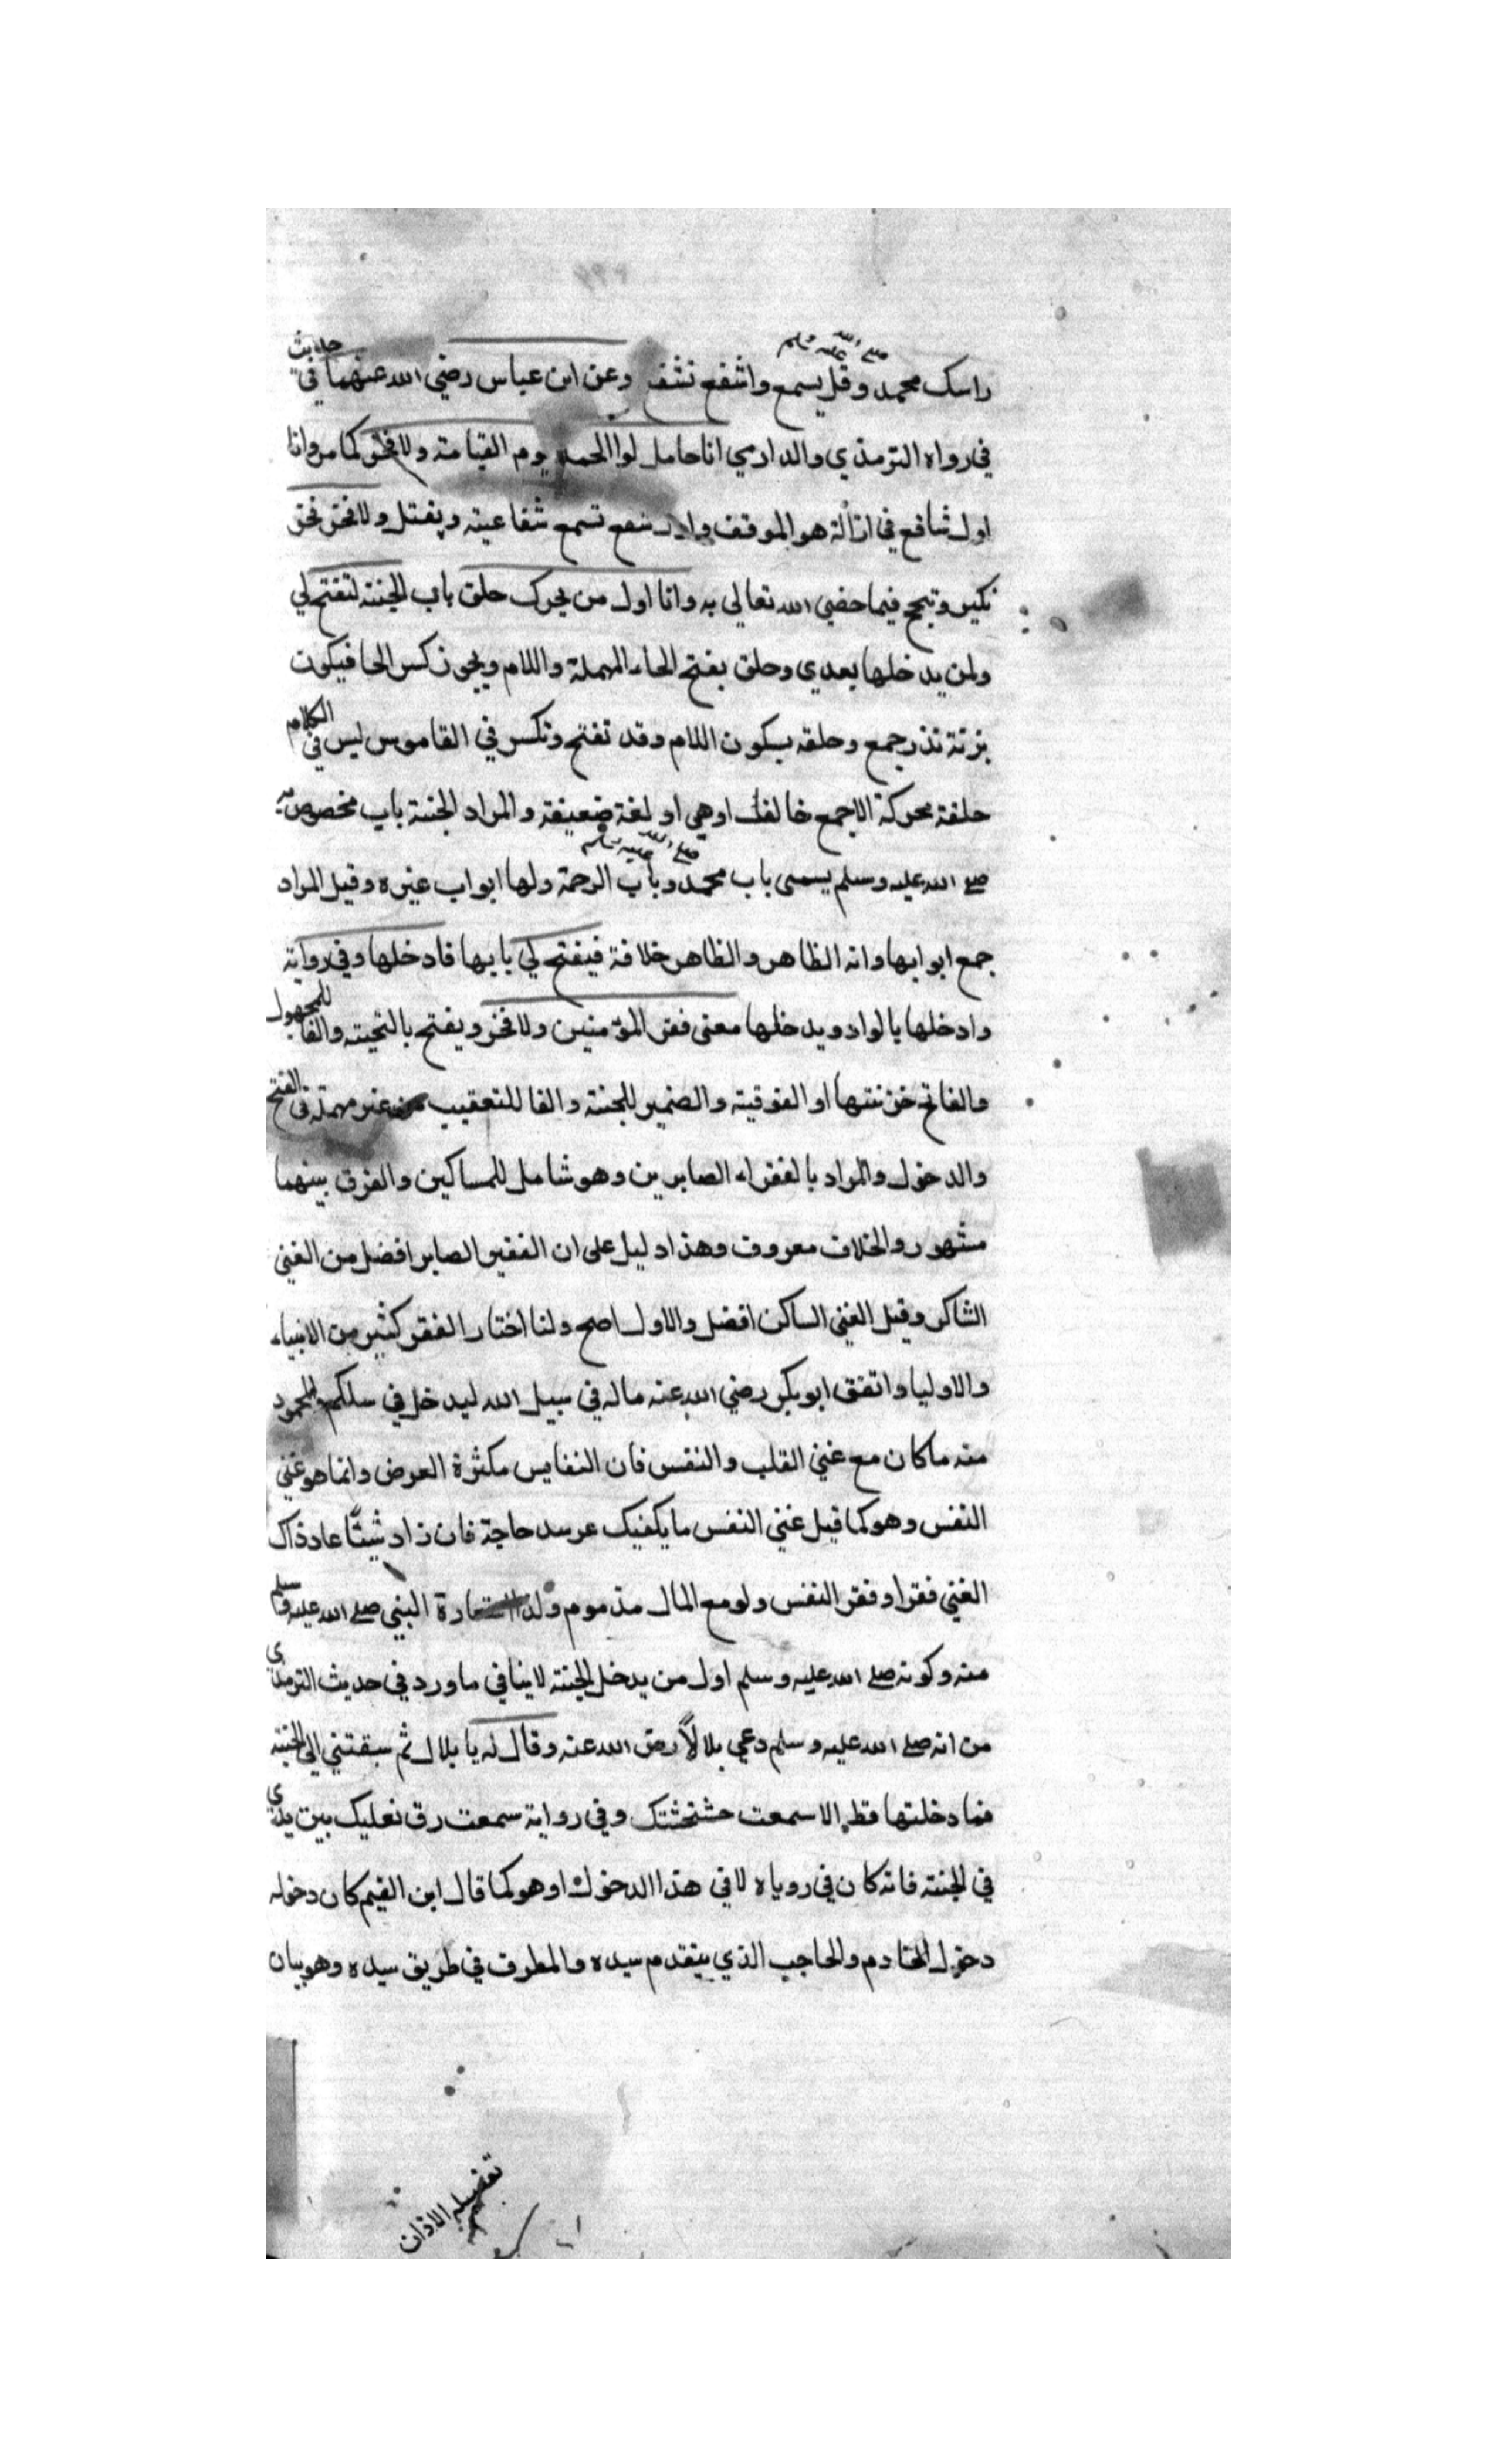 راسك محمد صلى الله عليه وسلم وقل يسمع واشفع تشفع وعن ابن عباس رضي الله عنهما في حديث
في رواه الترمذي والدارمي انا حامل لوا الحمد يوم القيامة ولا فخر كما مر وانا
اول شافع في ازالة هو الموقف واول شفع تسمع شفاعته ويقبل ولا فخر فخر
تكبر وتبجح فيما خصني الله تعالى به وانا اول من يحرك حلق باب الجنة لتفتح لي
ولمن يدخلها بعدي وحلق بفتح الحاء المهملة واللام ويجوز كسر الحا فيكون
بزنة نذر جمع وحلقه بسكون اللام وقد تفتح وتكسر في القاموس ليس في الكلام
حلقة محركة الا جمع خالفك اوهي او لغة ضعيفة والمراد الجنة باب مخصوص به
صلى الله عليه وسلم يسمى باب محمد صلى الله عليه وسلم وباب الرحمة ولها ابواب غيره وقيل المراد
جمع ابوابها وانه الظاهر والظاهر خلافة فيفتح لي بابها فادخلها وفي رواية
وادخلها بالواو ويدخلها معنى فقر المؤمنين ولا فخر ويفتح بالتحيته والفا للمجهول
والفاتح خزنتها او الفوقية والضمير للجنة والفا للتعقيب من غير مهملة في الفتح
والدخول والمراد بالفقراء الصابرين وهو شامل للمساكين والفرق بينهما
مشهور والخلاف معروف وهذا دليل على ان الفقير الصابر افضل من الغني
الشاكر وقيل الغني الساكن افضل والاول اصح ولنا اختار الفقر كثير من الانبياء
والاوليا واتفق ابوبكر رضي الله عنه ماله في سبيل الله ليدخل في سلكهم والمحمود
منه ما كان مع غني القلب والنفس فان النفايس مكثرة العرض وانما هو غني
النفس وهو كما قيل غني النفس ما يكفيك عر سد حاجة فان زاد شيئًا عاد ذاك
الغني فقرا وفقر النفس ولو مع المال مذموم ولذا استعاذة النبي صلى الله عليه وسلم
منه وكونه صلى الله عليه وسلم اول من يدخل الجنة لا ينافي ما ورد في حديث الترمذي
من انه صلى الله عليه وسلم دعي بلالاً رضى الله عنه وقال له يا بلال ثم سبقتني الى الجنة
فما دخلتها قط الا سمعت خشخشتك وفي رواية سمعت رق نعليك بين يدي
في الجنة فانه كان في روياه لا في هذا الدخول او هو كما قال ابن القيم كان دخوله
دخول الخادم والحاجب الذي يتقدم سيده والمطرف في طريق سيده وهو بيان
تفضيله الاذان